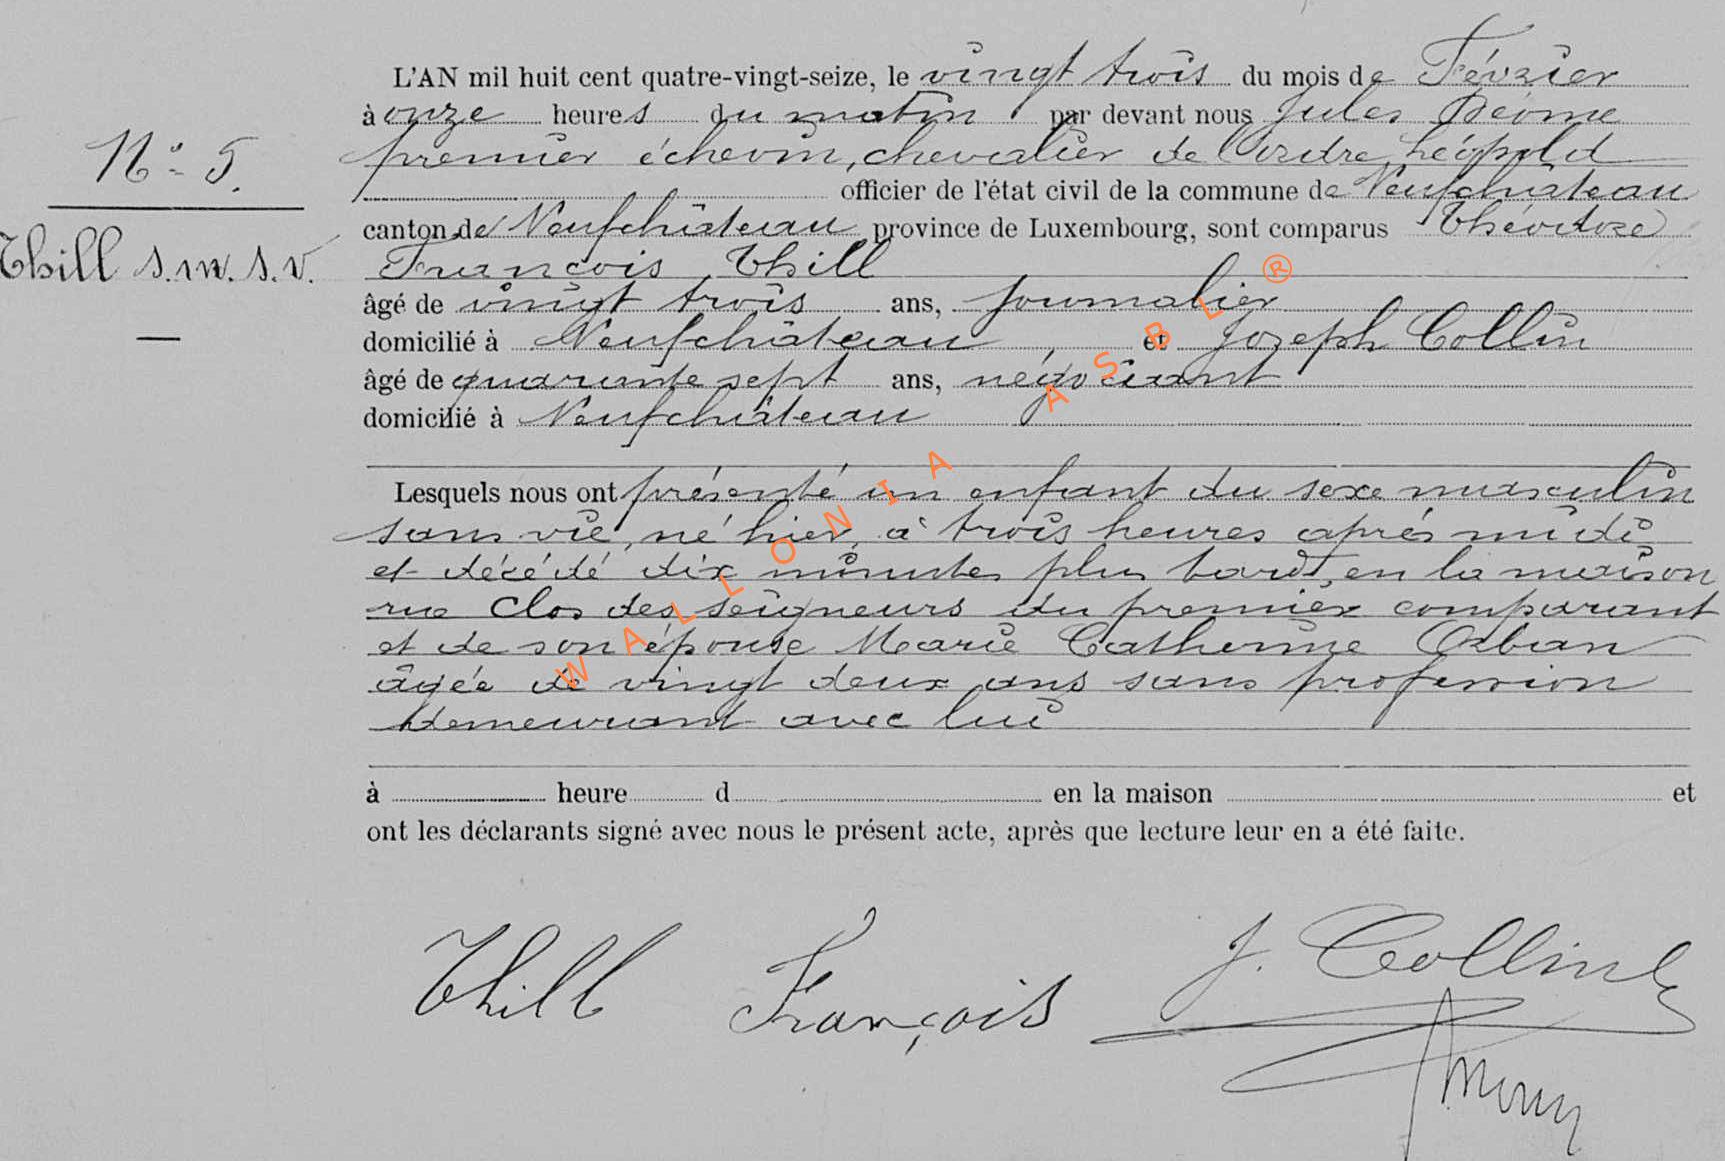 L'AN mil huit cent quatre-vingt-seize, le vingt trois du mois de Février
à onze heures du matin par devant nous Jules
N° 5.
premier échevin, chevalier de l'ordre Léopold
officier de l'état civil de la commune de Neufchâteau
canton de Neufchâteau province de Luxembourg, sont comparus Théodore
Thill s.m.s.v.
François Thill
âgé de vingt trois ans, journalier
domicilié à Neufchâteau, et Joseph Collin
âgé de quarante sept ans, négociant
domicilié à Neufchâteau
Lesquels nous ont présenté un enfant du sexe masculin
sans vie, né hier, à trois heures après midi
et décédé dix minutes plus tard, en la maison
rue Clos des seigneurs du premier comparant
et de son épouse Marie Catherine Orban
âgée de vingt deux ans sans profession
demeurant avec lui
à heure d en la maison et
ont les déclarants signé avec nous le présent acte, après que lecture leur en a été faite.
Thill François J. Collin
WALLONIA ASBL ®